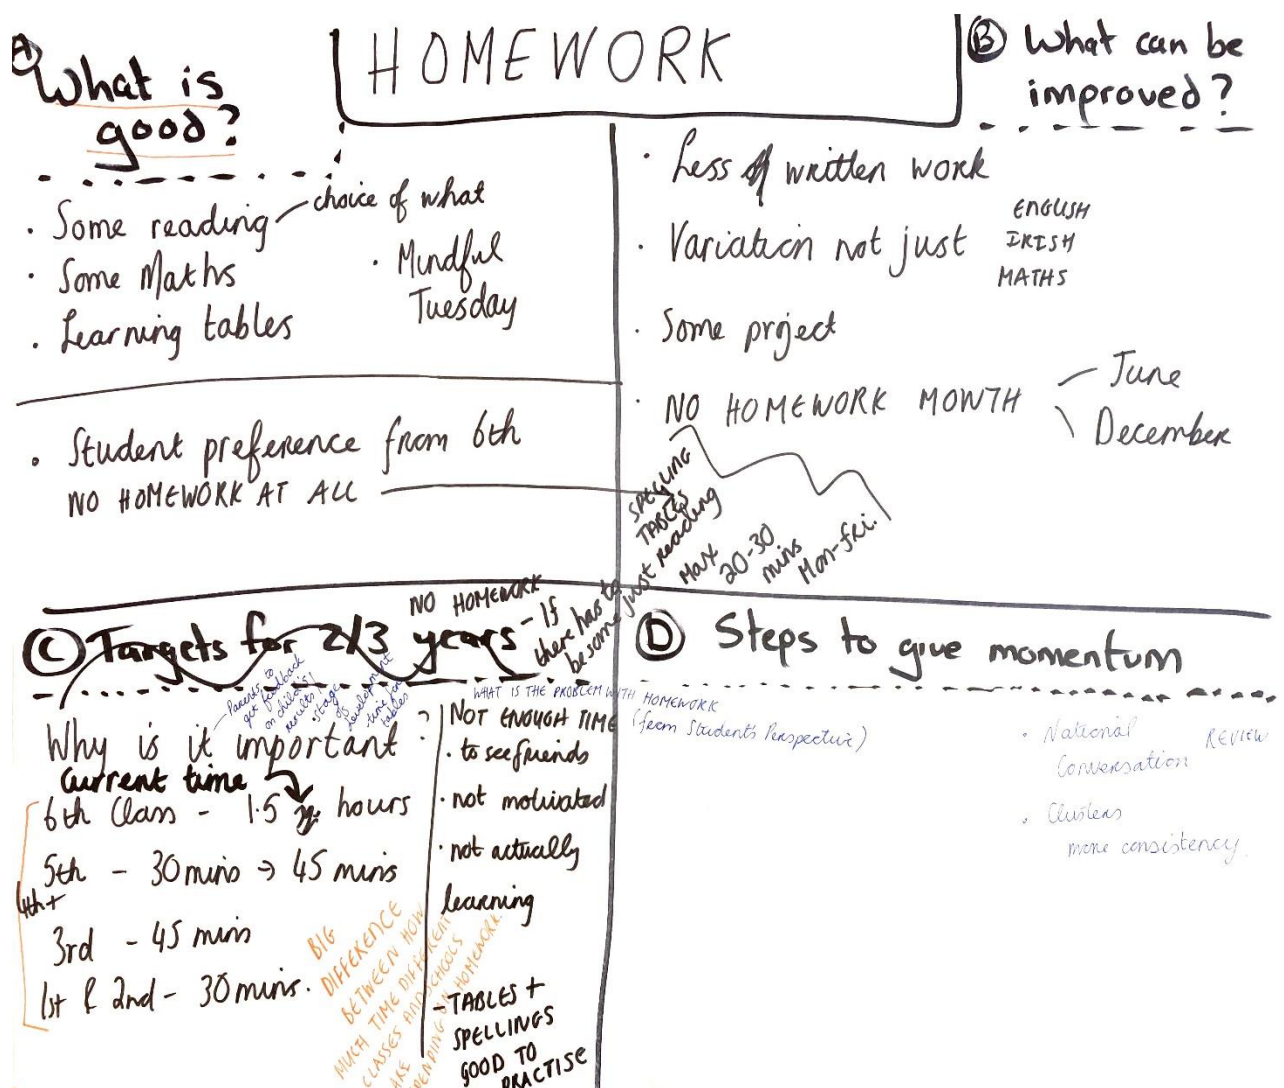 HOMEWORK
A
What is
good?
· Some reading
choice of what
· Some Maths
· Learning tables
· Mindful
Tuesday
· Student preference from 6th
NO HOMEWORK AT ALL
B What can be
improved?
· Less of written work
· Variation not just
ENGLISH
IRISH
MATHS
· Some project
· NO HOMEWORK MONTH
June
December
SPELLING
TABLES
just reading
Max
20-30
mins
Mon-Fri.
C Targets for 2/3 years
NO HOMEWORK
- If
there has to
be some
- Parents to
get feedback
on child's
results
stage
of
development
time for
tables
Why is it important ?
current time
6th Class - 1.5 hours
5th - 30 mins → 45 mins
4th+
3rd - 45 mins
1st & 2nd - 30 mins.
BIG
DIFFERENCE
BETWEEN HOW
MUCH TIME DIFFERENT
CLASSES AND SCHOOLS
ARE
SPENDING ON HOMEWORK.
WHAT IS THE PROBLEM WITH HOMEWORK
(from Students Perspective)
NOT ENOUGH TIME
· to see friends
· not motivated
· not actually
learning
- TABLES +
SPELLINGS
GOOD TO
PRACTISE
D Steps to give momentum
· National
Conversation
REVIEW
· Clusters
more consistency